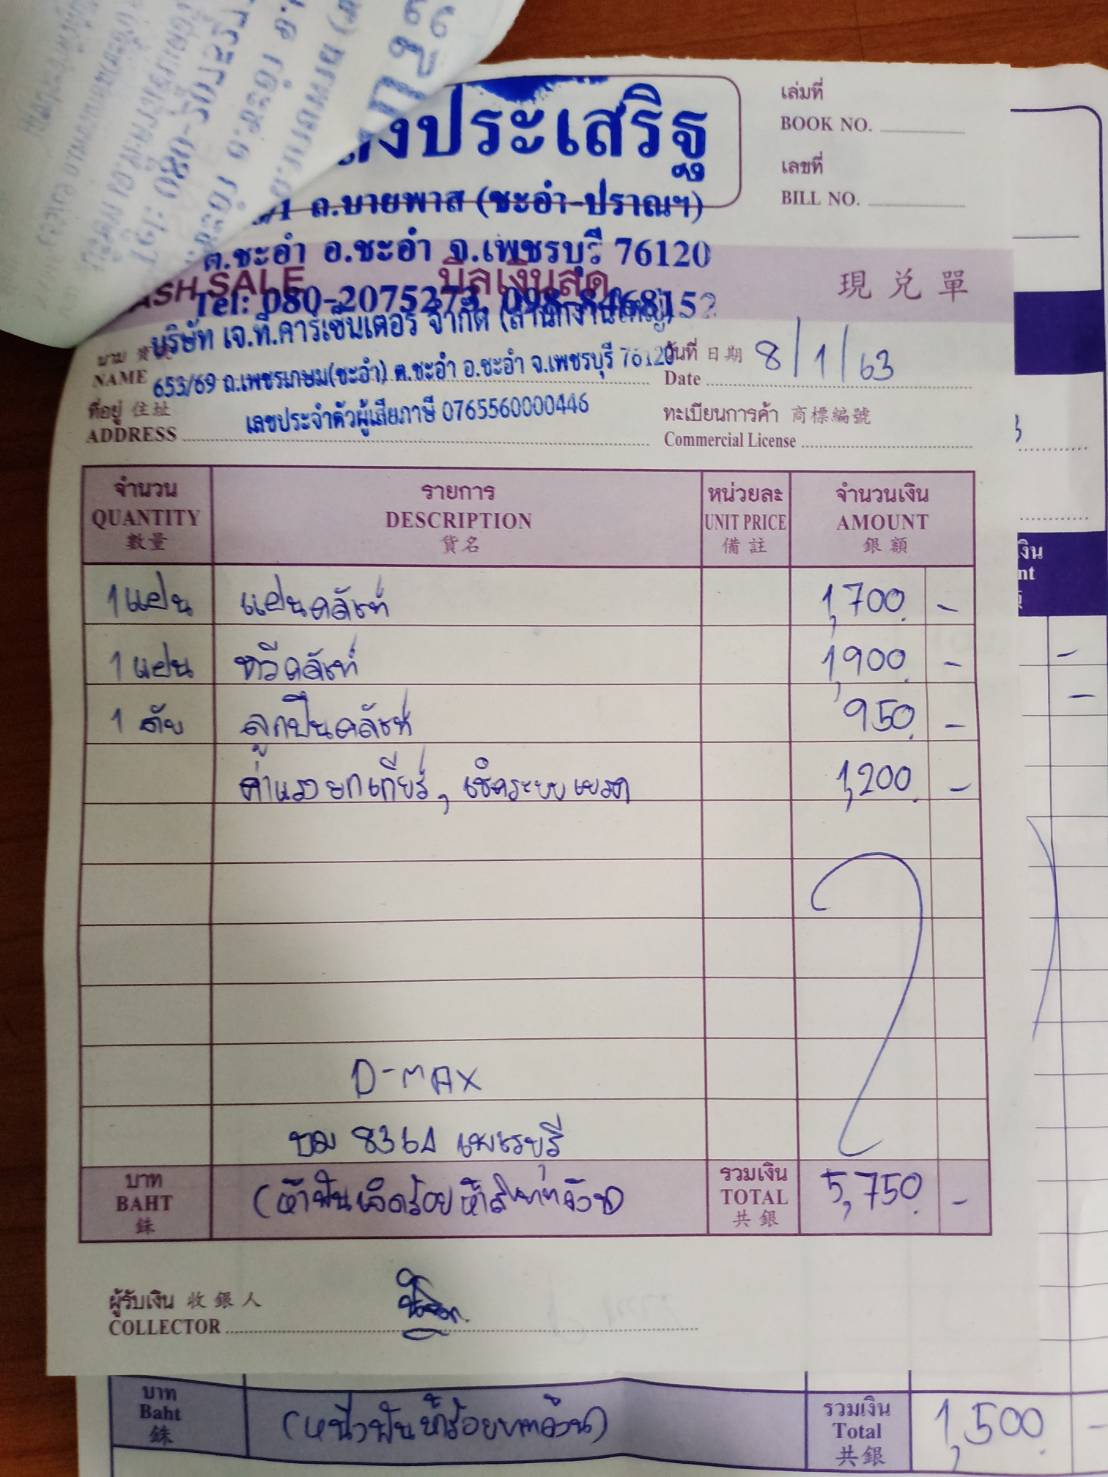 ประเสริฐ
ถ.บายพาส (ชะอำ-ปราณฯ)
ต.ชะอำ อ.ชะอำ จ.เพชรบุรี 76120
Tel: 080-2075273, 098-8468152
เล่มที่
BOOK NO.
เลขที่
BILL NO.
CASH SALE บิลเงินสด 現兌單
บริษัท เจ.ที.คาร์เซ็นเตอร์ จำกัด (สำนักงานใหญ่)
653/69 ถ.เพชรเกษม(ชะอำ) ต.ชะอำ อ.ชะอำ จ.เพชรบุรี 76120
เลขประจำตัวผู้เสียภาษี 0765560000446
นาม
NAME
วันที่ 日期 8/1/63
Date
ที่อยู่ 住址
ADDRESS
ทะเบียนการค้า 商標編號
Commercial License
จำนวน รายการ หน่วยละ จำนวนเงิน
QUANTITY DESCRIPTION UNIT PRICE AMOUNT
數量 貨名 備註 銀額
1 แผ่น แผ่นคลัชท์ 1,700 -
1 แผ่น หวีคลัชท์ 1,900 -
1 ตับ ลูกปืนคลัชท์ 950 -
ค่าแรงยกเกียร์, เช็คระบบเบรค 1,200 -
D-MAX
8364 เพชรบุรี
บาท (ห้าพันเจ็ดร้อยห้าสิบบาทถ้วน) รวมเงิน 5,750 -
BAHT TOTAL
銖 共銀
ผู้รับเงิน 收銀人
COLLECTOR
บาท (หนึ่งพันห้าร้อยบาทถ้วน) รวมเงิน 1,500 -
Baht Total
銖 共銀